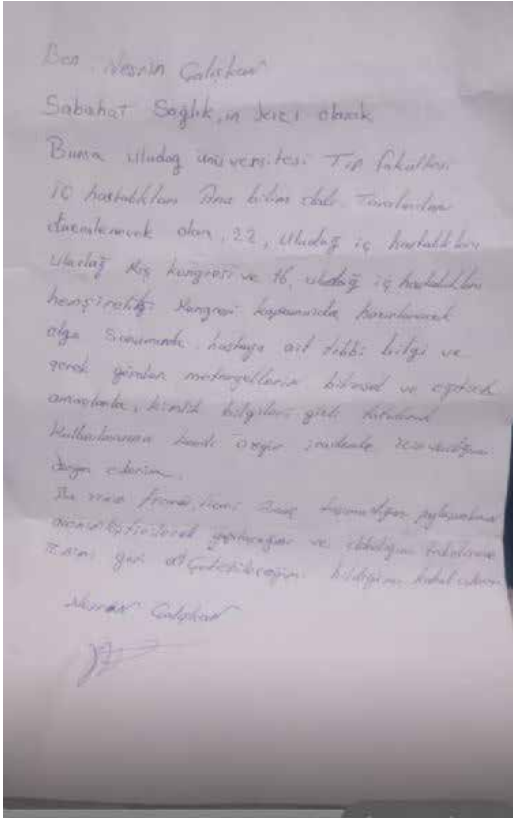 Ben Nesrin Çalışkan
Sabahat Sağlık,ın kızı olarak
Bursa Uludağ üniversitesi Tıp fakültesi
iç hastalıkları Ana bilim dalı Tarafından
düzenlenecek olan 22, Uludağ iç hastalıkları
Uludağ Kış kongresi ve 16, uludağ iç hastalıkları
hemşireliği Kongresi kapsamında hazırlanacak
olgu Sunumunda hastaya ait tıbbi bilgi ve
gerek görülen metaryellerin bilimsel ve eğitsel
amaçlarla, kimlik bilgileri gizli tutularak
kullanılmasına kendi özgür irademle izin verdiğimi
beyan ederim.
Bu rızanın amacı taşımadığını
ve dilediğim takdirde
geri bildiğimi kabul ederim
Nesrin Çalışkan